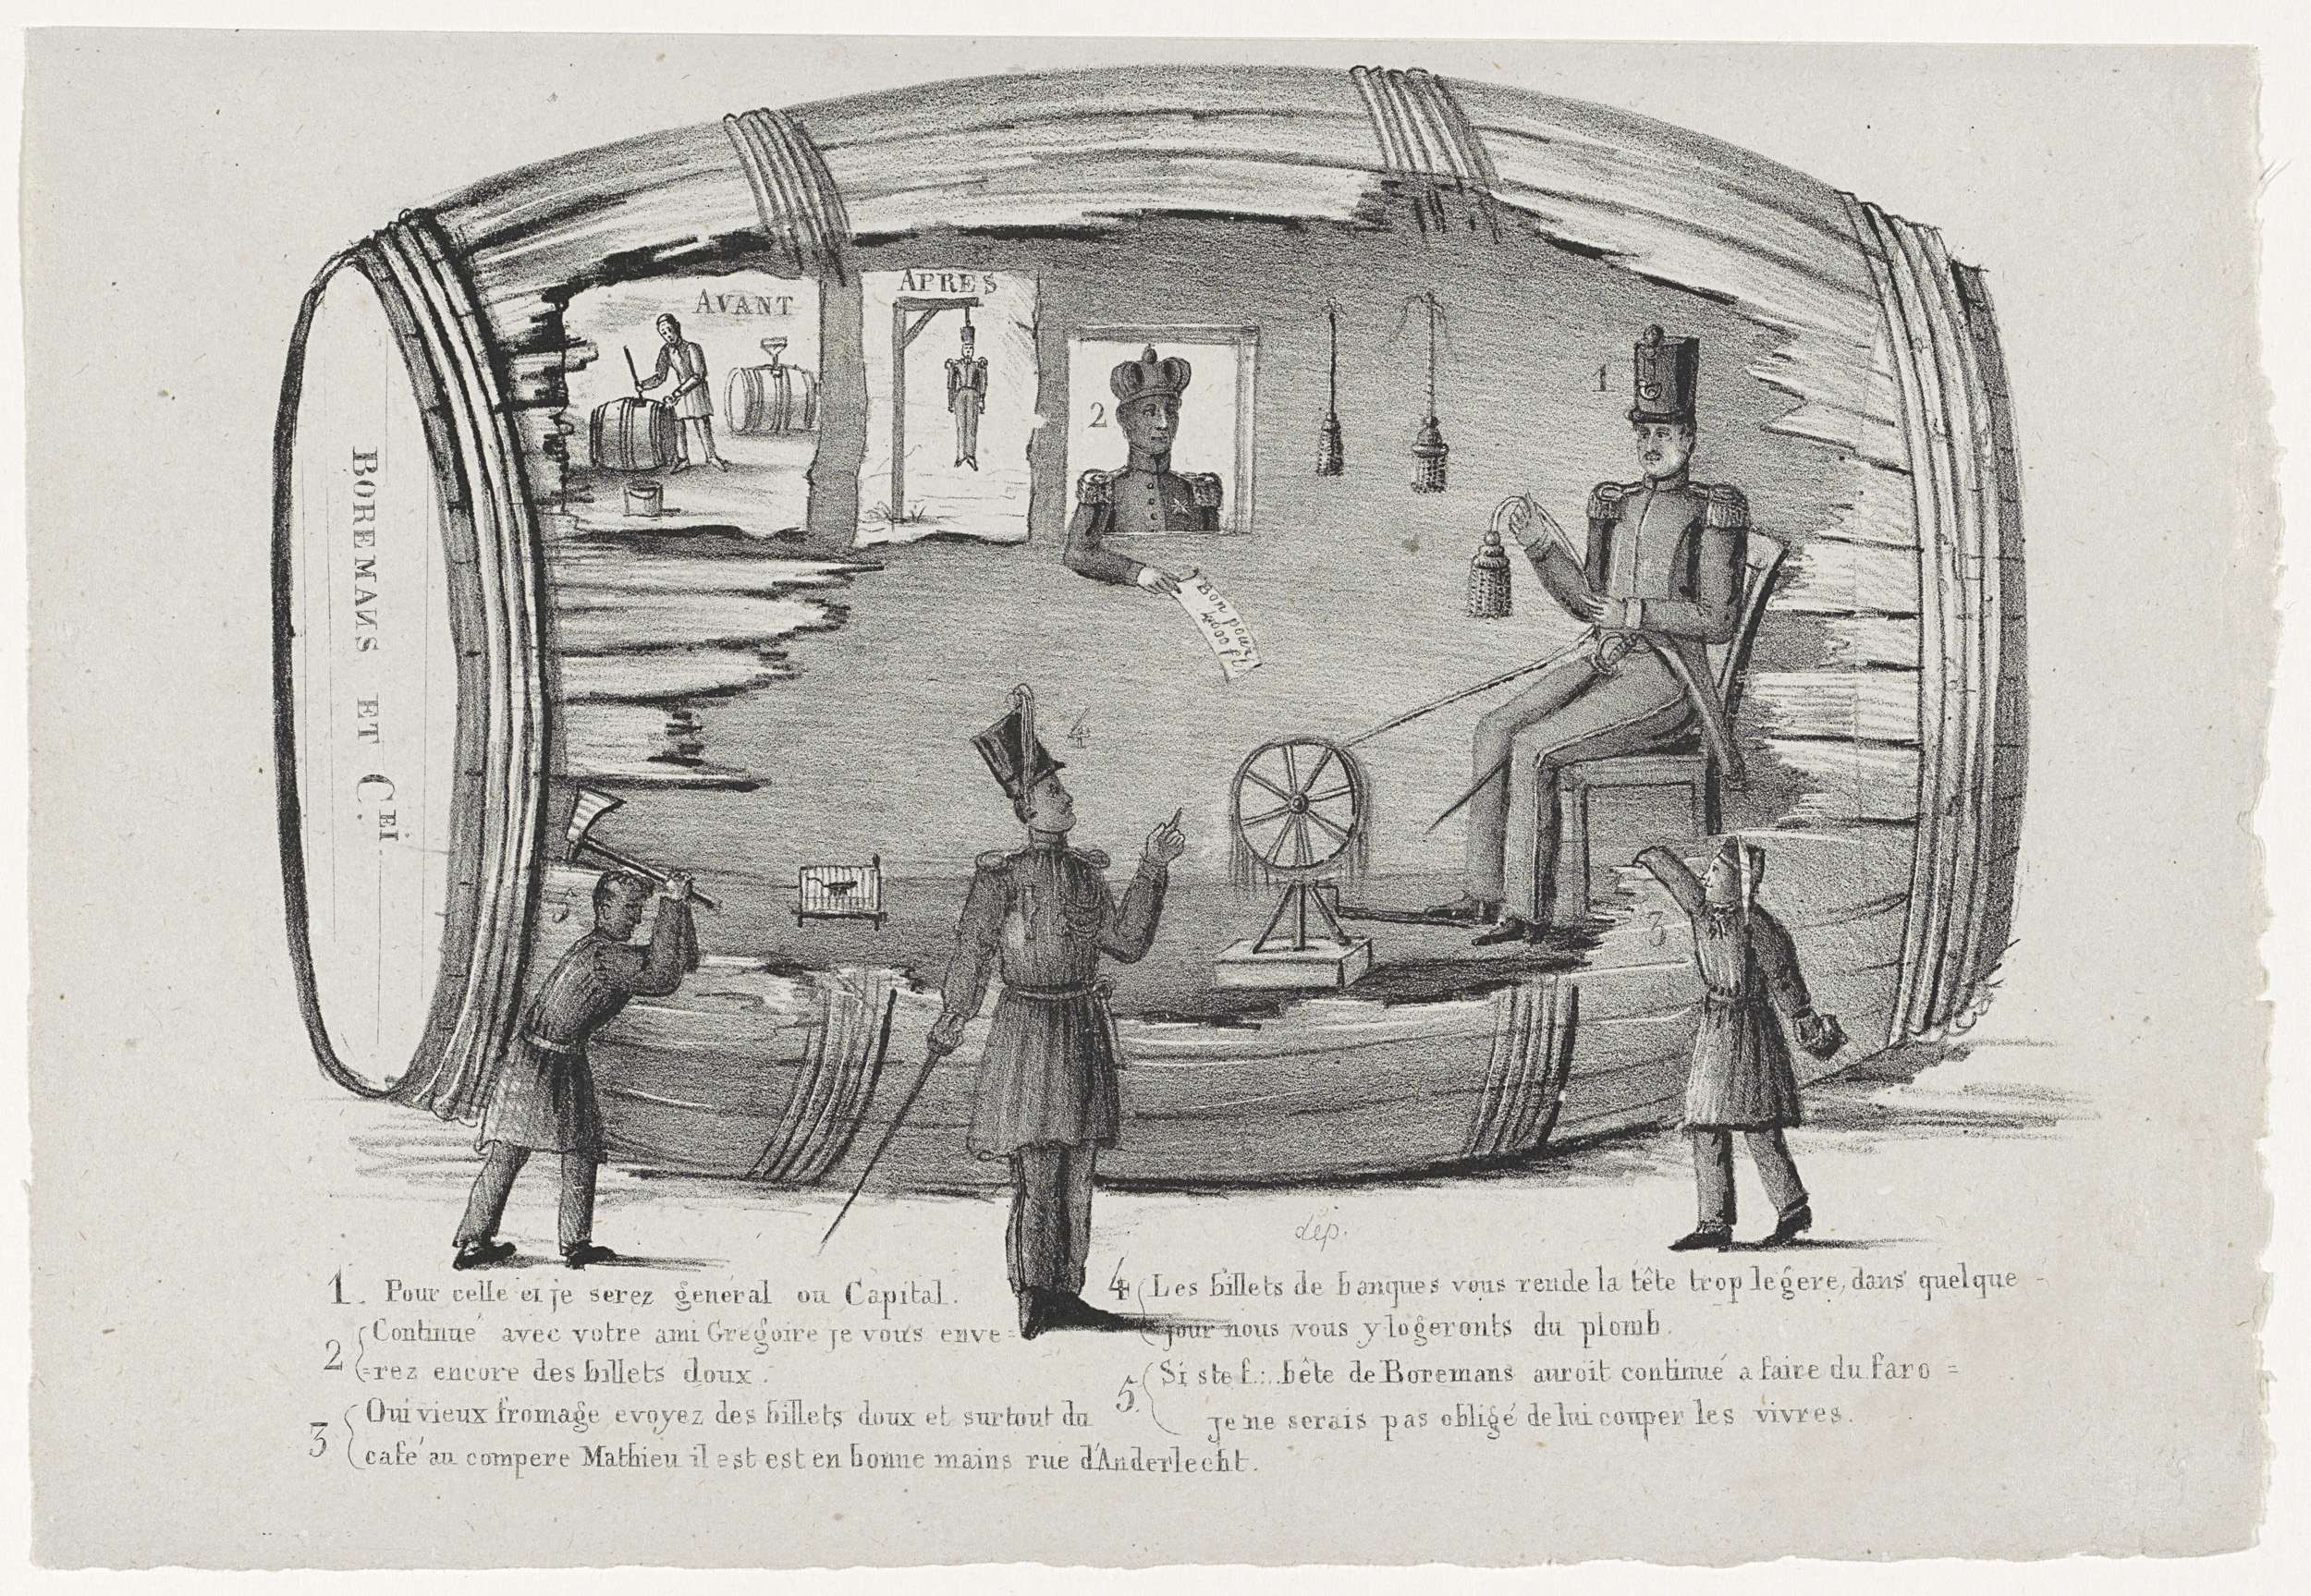 AVANT
APRES
1
2
BOREMANS ET CEI.
Bon pour
4000 fl
4
5
3
dép.
1. Pour celle ci je serez general ou Capital.
2 Continué avec votre ami Gregoire je vous enve=
=rez encore des billets doux.
3 Oui vieux fromage evoyez des billets doux et surtout du
café au compere Mathieu il est est en bonne mains rue d'Anderlecht.
4 Les billets de banques vous rende la tête trop legere, dans quelque
jour nous vous y logeronts du plomb.
5. Si ste f:.. bête de Boremans auroit continué a faire du faro =
je ne serais pas obligé de lui couper les vivres.